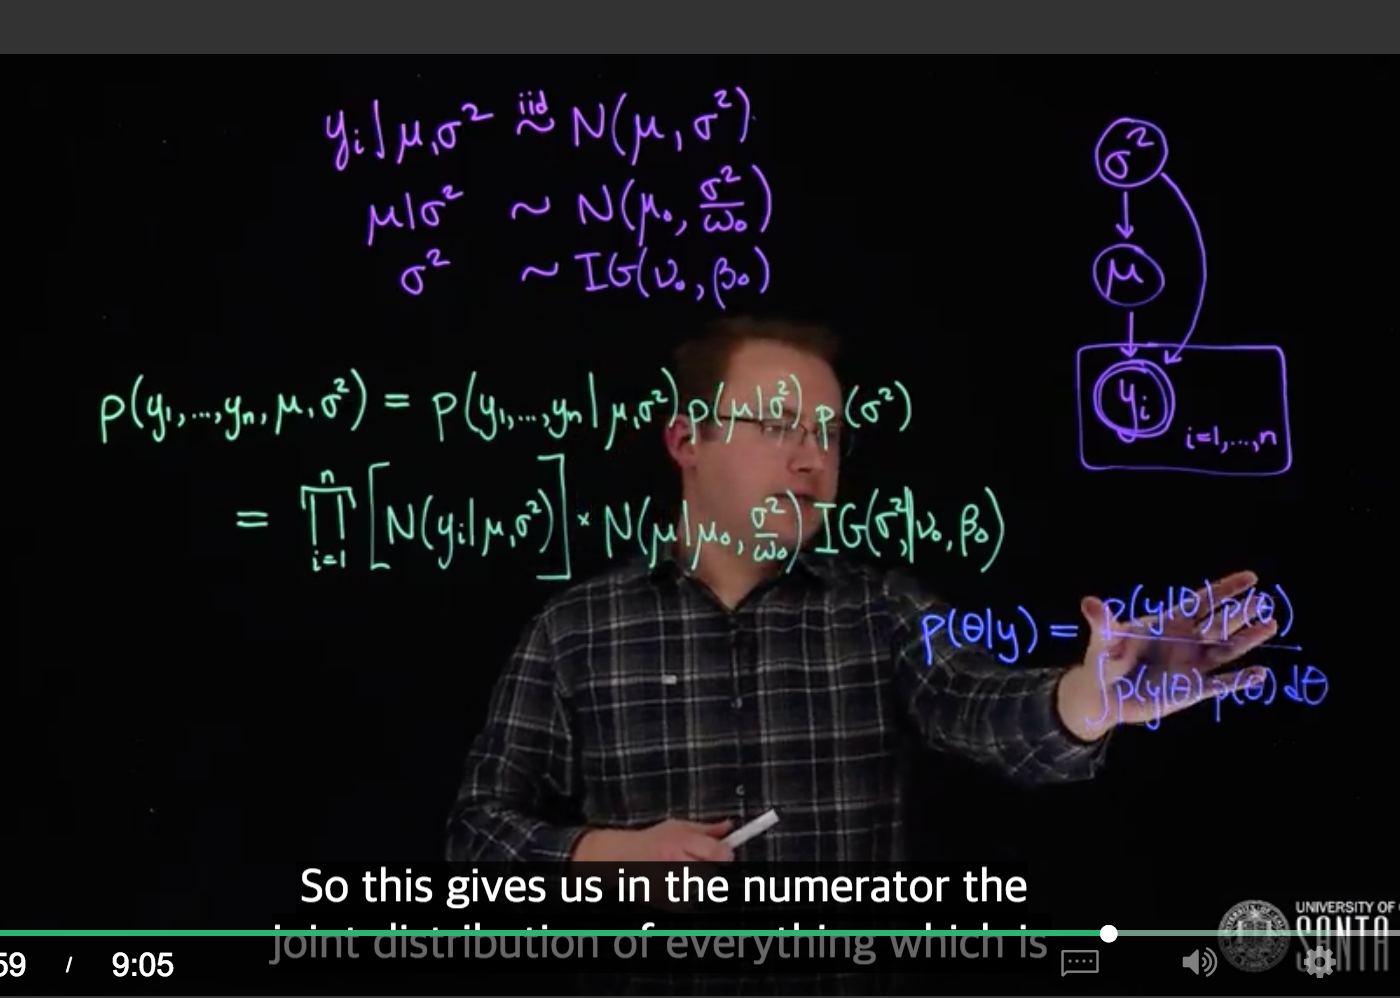 yᵢ | μ, σ² iid ~ N(μ, σ²)
μ | σ² ~ N(μ₀, σ²/ω₀)
σ² ~ IG(ν₀, β₀)
σ²
μ
yᵢ
i=1,...,n
p(y₁,...,yₙ, μ, σ²) = p(y₁,...,yₙ | μ, σ²) p(μ | σ²) p(σ²)
= ∏ᵢ₌₁ⁿ [N(yᵢ | μ, σ²)] × N(μ | μ₀, σ²/ω₀) IG(σ² | ν₀, β₀)
p(θ|y) = p(y|θ) p(θ) / ∫ p(y|θ) p(θ) dθ
So this gives us in the numerator the
joint distribution of everything which is
UNIVERSITY OF
SANTA
59 / 9:05